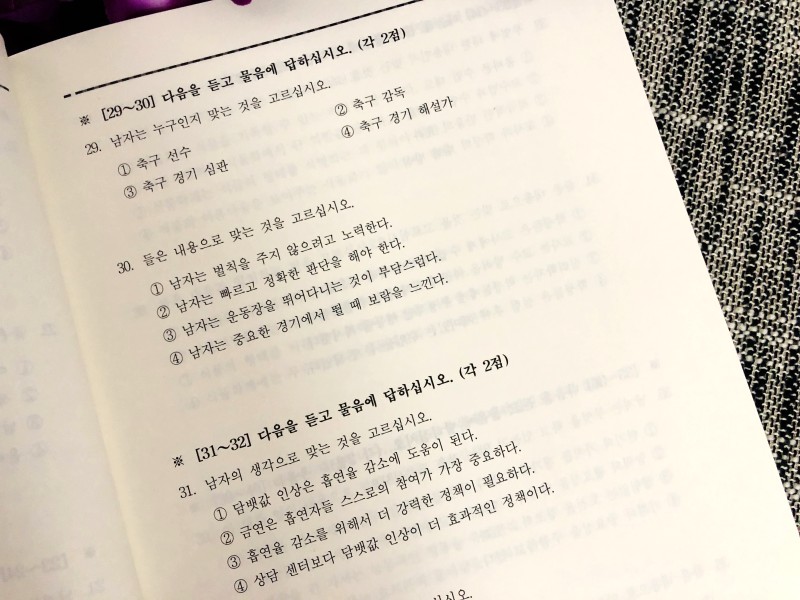 ※ [29～30] 다음을 듣고 물음에 답하십시오. (각 2점)
29. 남자는 누구인지 맞는 것을 고르십시오.
① 축구 선수 ② 축구 감독
③ 축구 경기 심판 ④ 축구 경기 해설가
30. 들은 내용으로 맞는 것을 고르십시오.
① 남자는 벌칙을 주지 않으려고 노력한다.
② 남자는 빠르고 정확한 판단을 해야 한다.
③ 남자는 운동장을 뛰어다니는 것이 부담스럽다.
④ 남자는 중요한 경기에서 뛸 때 보람을 느낀다.
※ [31～32] 다음을 듣고 물음에 답하십시오. (각 2점)
31. 남자의 생각으로 맞는 것을 고르십시오.
① 담뱃값 인상은 흡연율 감소에 도움이 된다.
② 금연은 흡연자들 스스로의 참여가 가장 중요하다.
③ 흡연율 감소를 위해서 더 강력한 정책이 필요하다.
④ 상담 센터보다 담뱃값 인상이 더 효과적인 정책이다.